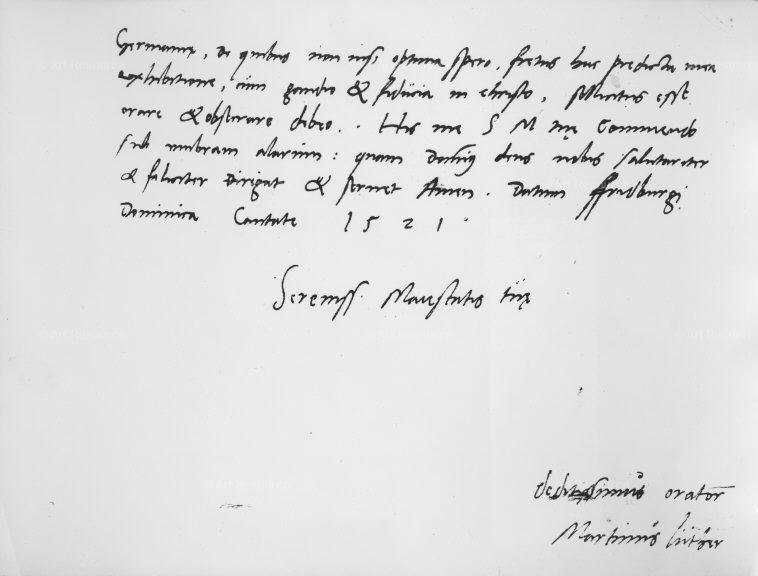 Germanię, de quibus non nisi optima spero, fretus hac predicta mea
exhibitione, cum gaudio & fiducia in christo, sollicitus esse
orare & obsecrare debeo. His me S M tuę Commendo
sub umbram alarum: quam Dominus deus nobis salutariter
& faliciter Dirigat & servet Amen. Datum ffridburgi
Dominica Cantate 1521
Sereniss. Maiestatis tuę
deditissimus orator
Martinus luther
© Art Resource